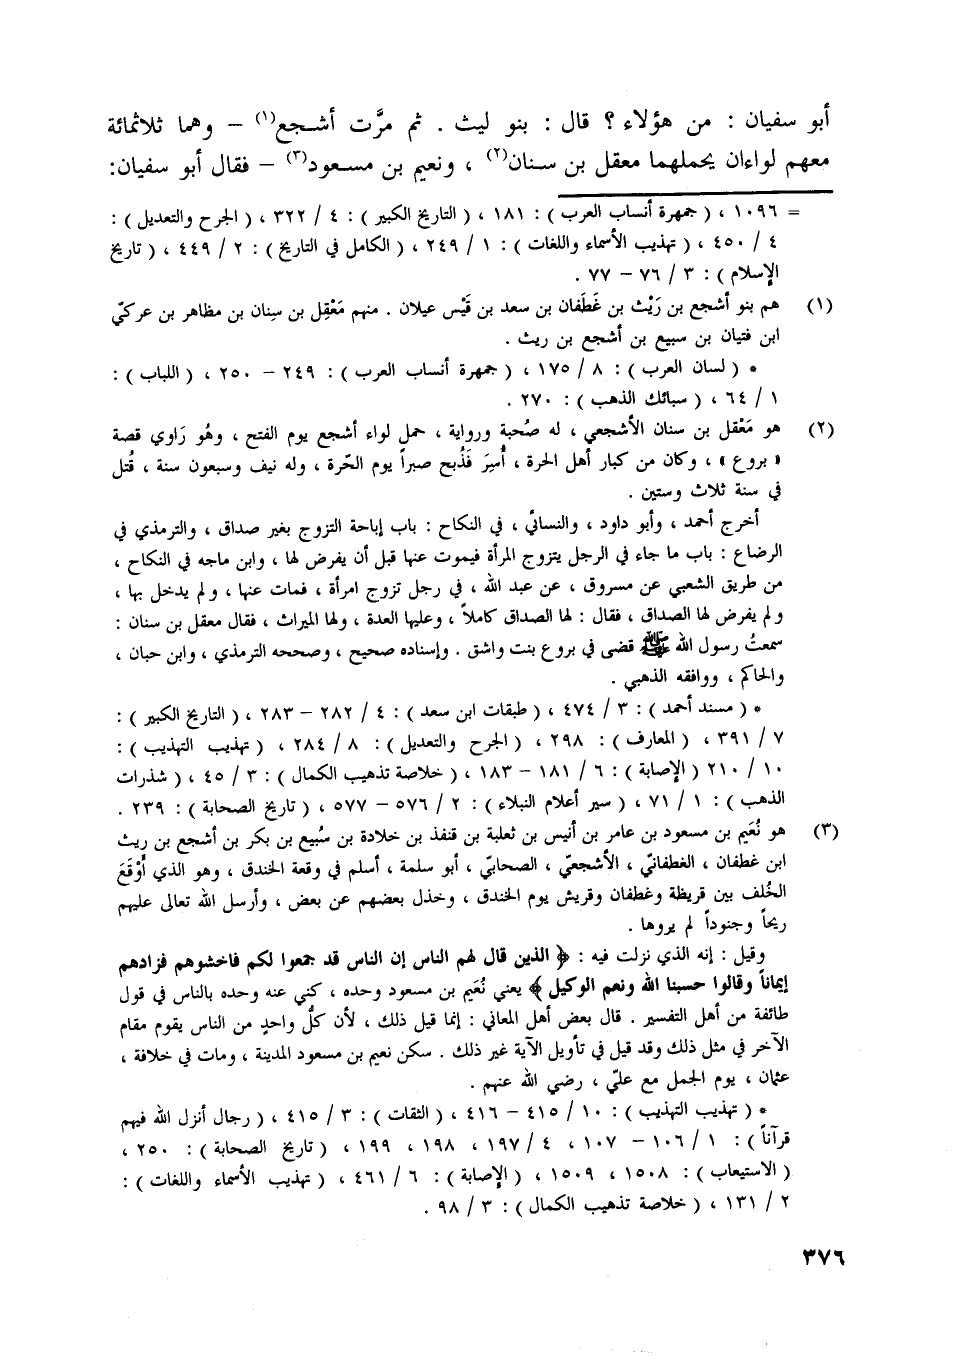 أبو سفيان : من هؤلاء ؟ قال : بنو ليث . ثم مرَّت أشـجع(١) – وهما ثلاثمائة
معهم لواءان يحملهما معقل بن سـنان(٢) ، ونعيم بن مسـعود(٣) – فقال أبو سفيان:
= ١٠٩٦ ، ( جمهرة أنساب العرب ) : ١٨١ ، ( التاريخ الكبير ) : ٤ / ٣٢٢ ، ( الجرح والتعديل ) :
٤ / ٤٥٠ ، ( تهذيب الأسماء واللغات ) : ١ / ٢٤٩ ، ( الكامل في التاريخ ) : ٢ / ٤٤٩ ، ( تاريخ
الإسلام ) : ٣ / ٧٦ – ٧٧ .
(١) هم بنو أشجع بن رَيْث بن غَطَفان بن سعد بن قَيْس عيلان . منهم مَعْقِل بن سِنان بن مظاهر بن عركيّ
ابن فتيان بن سبيع بن أشجع بن ريث .
* ( لسان العرب ) : ٨ / ١٧٥ ، ( جمهرة أنساب العرب ) : ٢٤٩ – ٢٥٠ ، ( اللباب ) :
١ / ٦٤ ، ( سبائك الذهب ) : ٢٧٠ .
(٢) هو مَعْقل بن سنان الأشجعي ، له صُحبة ورواية ، حمل لواء أشجع يوم الفتح ، وهُو رَاوي قصة
« بروع » ، وكان من كبار أهل الحرة ، أُسِرَ فَذُبح صبراً يوم الحَرة ، وله نيف وسبعون سنة ، قُتل
في سنة ثلاث وستين .
أخرج أحمد ، وأبو داود ، والنسائي ، في النكاح : باب إباحة التزوج بغير صداق ، والترمذي في
الرضاع : باب ما جاء في الرجل يتزوج المرأة فيموت عنها قبل أن يفرض لها ، وابن ماجه في النكاح ،
من طريق الشعبي عن مسروق ، عن عبد الله ، في رجل تزوج امرأة ، فمات عنها ، ولم يدخل بها ،
ولم يفرض لها الصداق ، فقال : لها الصداق كاملاً ، وعليها العدة ، ولها الميراث ، فقال معقل بن سنان :
سمعتُ رسول الله ﷺ قضى في بروع بنت واشق . وإسناده صحيح ، وصححه الترمذي ، وابن حبان ،
والحاكم ، ووافقه الذهبي .
* ( مسند أحمد ) : ٣ / ٤٧٤ ، ( طبقات ابن سعد ) : ٤ / ٢٨٢ – ٢٨٣ ، ( التاريخ الكبير ) :
٧ / ٣٩١ ، ( المعارف ) : ٢٩٨ ، ( الجرح والتعديل ) : ٨ / ٢٨٤ ، ( تهذيب التهذيب ) :
١٠ / ٢١٠ ( الإصابة ) : ٦ / ١٨١ – ١٨٣ ، ( خلاصة تذهيب الكمال ) : ٣ / ٤٥ ، ( شذرات
الذهب ) : ١ / ٧١ ، ( سير أعلام النبلاء ) : ٢ / ٥٧٦ – ٥٧٧ ، ( تاريخ الصحابة ) : ٢٣٩ .
(٣) هو نُعَيم بن مسعود بن عامر بن أنيس بن ثعلبة بن قنفذ بن خلادة بن سُبيع بن بكر بن أشجع بن ريث
ابن غطفان ، الغطفانيّ ، الأشجعيّ ، الصحابيّ ، أبو سلمة ، أسلم في وقعة الخندق ، وهو الذي أَوْقَعَ
الخُلف بين قريظة وغطفان وقريش يوم الخندق ، وخذل بعضهم عن بعض ، وأرسل الله تعالى عليهم
ريحاً وجنوداً لم يروها .
وقيل : إنه الذي نزلت فيه : ﴿ الذين قال لهم الناس إن الناس قد جمعوا لكم فاخشوهم فزادهم
إيماناً وقالوا حسبنا الله ونعم الوكيل ﴾ يعني نُعَيم بن مسعود وحده ، كني عنه وحده بالناس في قول
طائفة من أهل التفسير . قال بعض أهل المعاني : إنما قيل ذلك ، لأن كلُّ واحدٍ من الناس يقوم مقام
الآخر في مثل ذلك وقد قيل في تأويل الآية غير ذلك . سكن نعيم بن مسعود المدينة ، ومات في خلافة ،
عثمان ، يوم الجمل مع عليّ ، رضي الله عنهم .
* ( تهذيب التهذيب ) : ١٠ / ٤١٥ – ٤١٦ ، ( الثقات ) : ٣ / ٤١٥ ، ( رجال أنزل الله فيهم
قرآناً ) : ١ / ١٠٦ – ١٠٧ ، ٤ / ١٩٧ ، ١٩٨ ، ١٩٩ ، ( تاريخ الصحابة ) : ٢٥٠ ،
( الاستيعاب ) : ١٥٠٨ ، ١٥٠٩ ، ( الإصابة ) : ٦ / ٤٦١ ، ( تهذيب الأسماء واللغات ) :
٢ / ١٣١ ، ( خلاصة تذهيب الكمال ) : ٣ / ٩٨ .
٣٧٦